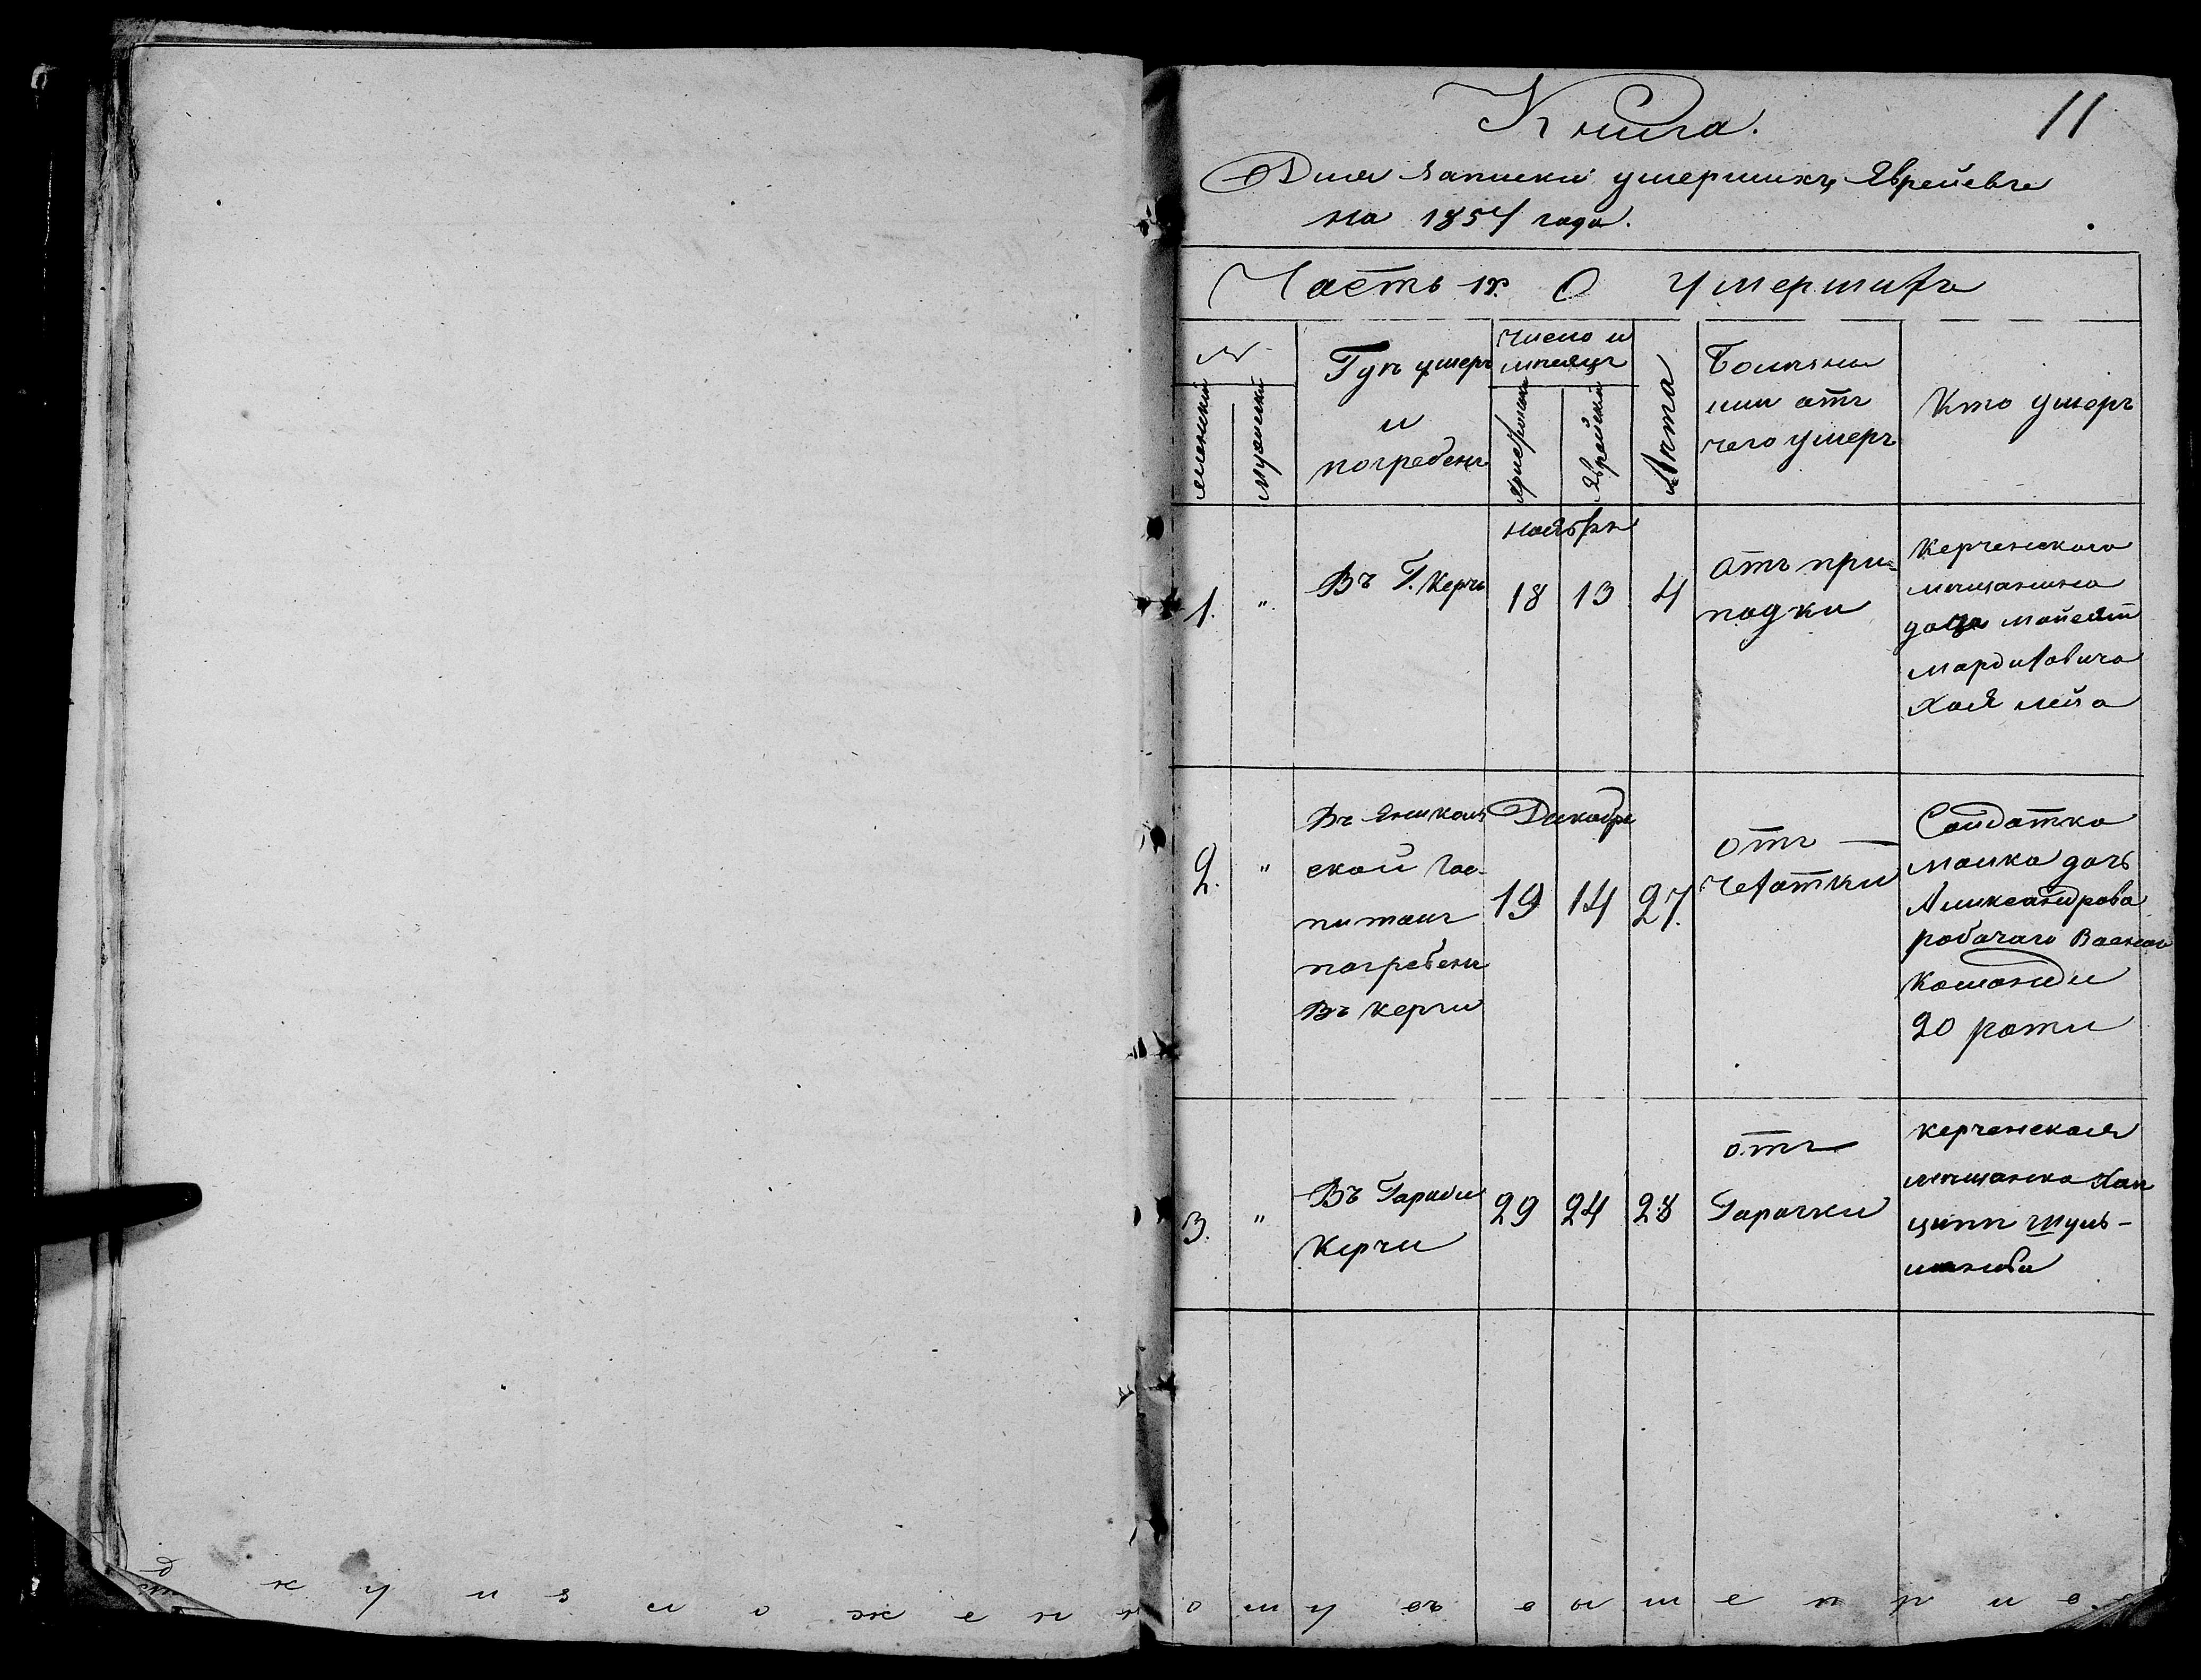 11
Книга.
Для записки умершихъ Евреевъ
на 1857 года.
Часть О умершихъ
№
женскій
мужескій
Гдѣ умеръ
и
погребенъ
Число и
мѣсяцъ
христіянскій
Еврейскій
Лѣта
Болѣзни
или отъ
чего умеръ
Кто умеръ
ноябрь
1.
"
Въ Г. Керчь
18
13
4
отъ при=
подки
Керченского
мѣщанина
Мардиховича
Хая лея
Декабрь
2.
"
Въ
ской гос-
питалъ
погребенъ
Въ Керчи
19
14
27.
отъ —
Чехотки
Солдатка
малка дочь
Александрова
рабочаго
команди
20 роти
3.
"
Въ Гароди
Керчи
29
24
28
отъ
Гарачки
керченская
мѣщанка
д к у и з л о ж е н н о м у въ